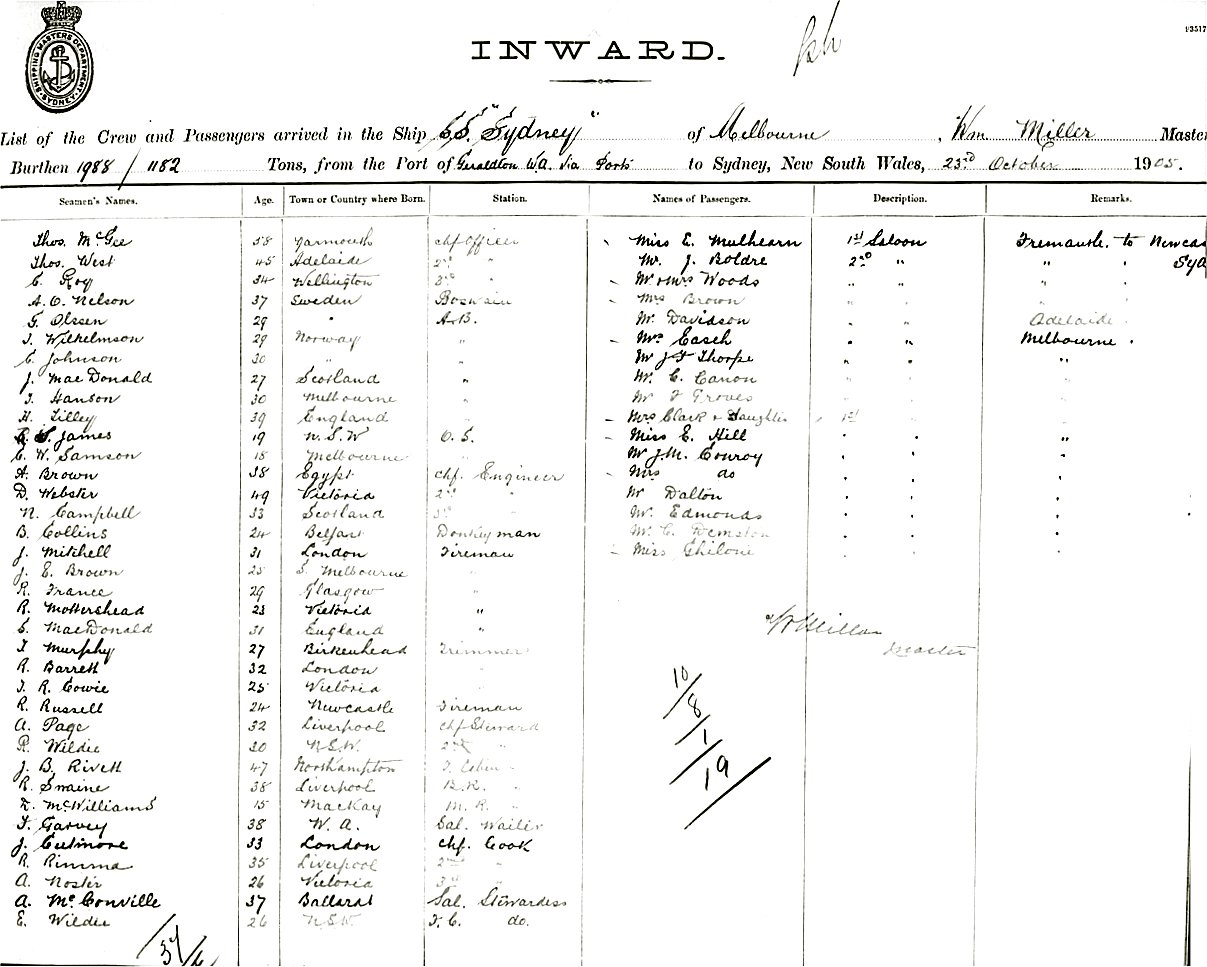 SHIPPING MASTERS DEPARTMENT SYDNEY
INWARD.
List of the Crew and Passengers arrived in the Ship S.S. "Sydney" of Melbourne, Wm Miller Master
Burthen 1988/1182 Tons, from the Port of Geraldton W.A. via Ports to Sydney, New South Wales, 23rd October 1905.
Seamen's Names. Age. Town or Country where Born. Station. Names of Passengers. Description. Remarks.
Thos. McGee 58 Yarmouth chf Officer Miss E. Mulhearn 1st Saloon Fremantle. to Newcas
Thos. West 45 Adelaide 2nd " Mr. J. Boldre 2nd " " " Syd
C. Roy 34 Wellington 3rd " Mr & Mrs Woods " " " "
A. O. Nelson 37 Sweden Boswain Mrs Brown " " " "
G. Olssen 29 " A.B. Mr. Davidson " " Adelaide "
J. Wilhelmson 29 Norway " Mrs Easch " " Melbourne "
C. Johnson 30 " " Mr J F Thorpe " " "
J. MacDonald 27 Scotland " Mr. C. Canon " " "
J. Hanson 30 Melbourne " Mr F Groves " " "
H. Lilley 39 England " Mrs Clark & Daughter 1st " "
S. James 19 N.S.W O.S. Miss E. Hill " " "
C. W. Samson 18 Melbourne " Mr J.M. Conroy " " "
A. Brown 38 Egypt chf. Engineer Mrs do " " "
D. Webster 49 Victoria 2nd " Mr Dalton " " "
N. Campbell 33 Scotland 3rd " Mr. Edmonds " " "
B. Collins 24 Belfast Donkeyman Mr. C. Demston " " "
J. Mitchell 31 London Fireman Miss Ghiloni " " "
J. E. Brown 25 S. Melbourne "
R. France 29 Glasgow "
R. Mottershead 23 Victoria "
S. MacDonald 31 England "
W Miller
J. Murphy 27 Birkenhead Trimmer
Master
R. Barrett 32 London "
J. R. Cowie 25 Victoria "
R. Russell 24 Newcastle Fireman
A. Page 32 Liverpool chf Steward
R. Wildie 30 N.S.W. 2nd "
J. B. Rivett 47 Northampton F. Cabin "
R. Swaine 38 Liverpool B.R. "
McWilliams 15 Mackay M. R. "
F. Garvey 38 W. A. Sal. Waiter
J. Cutmore 33 London chf. Cook
R. Rimma 35 Liverpool 2nd "
A. Noster 26 Victoria 3rd "
A. McConville 37 Ballarat Sal. Stewardess
E. Wildie 26 N.S.W. F. C. do.
10/
8/
1/
19